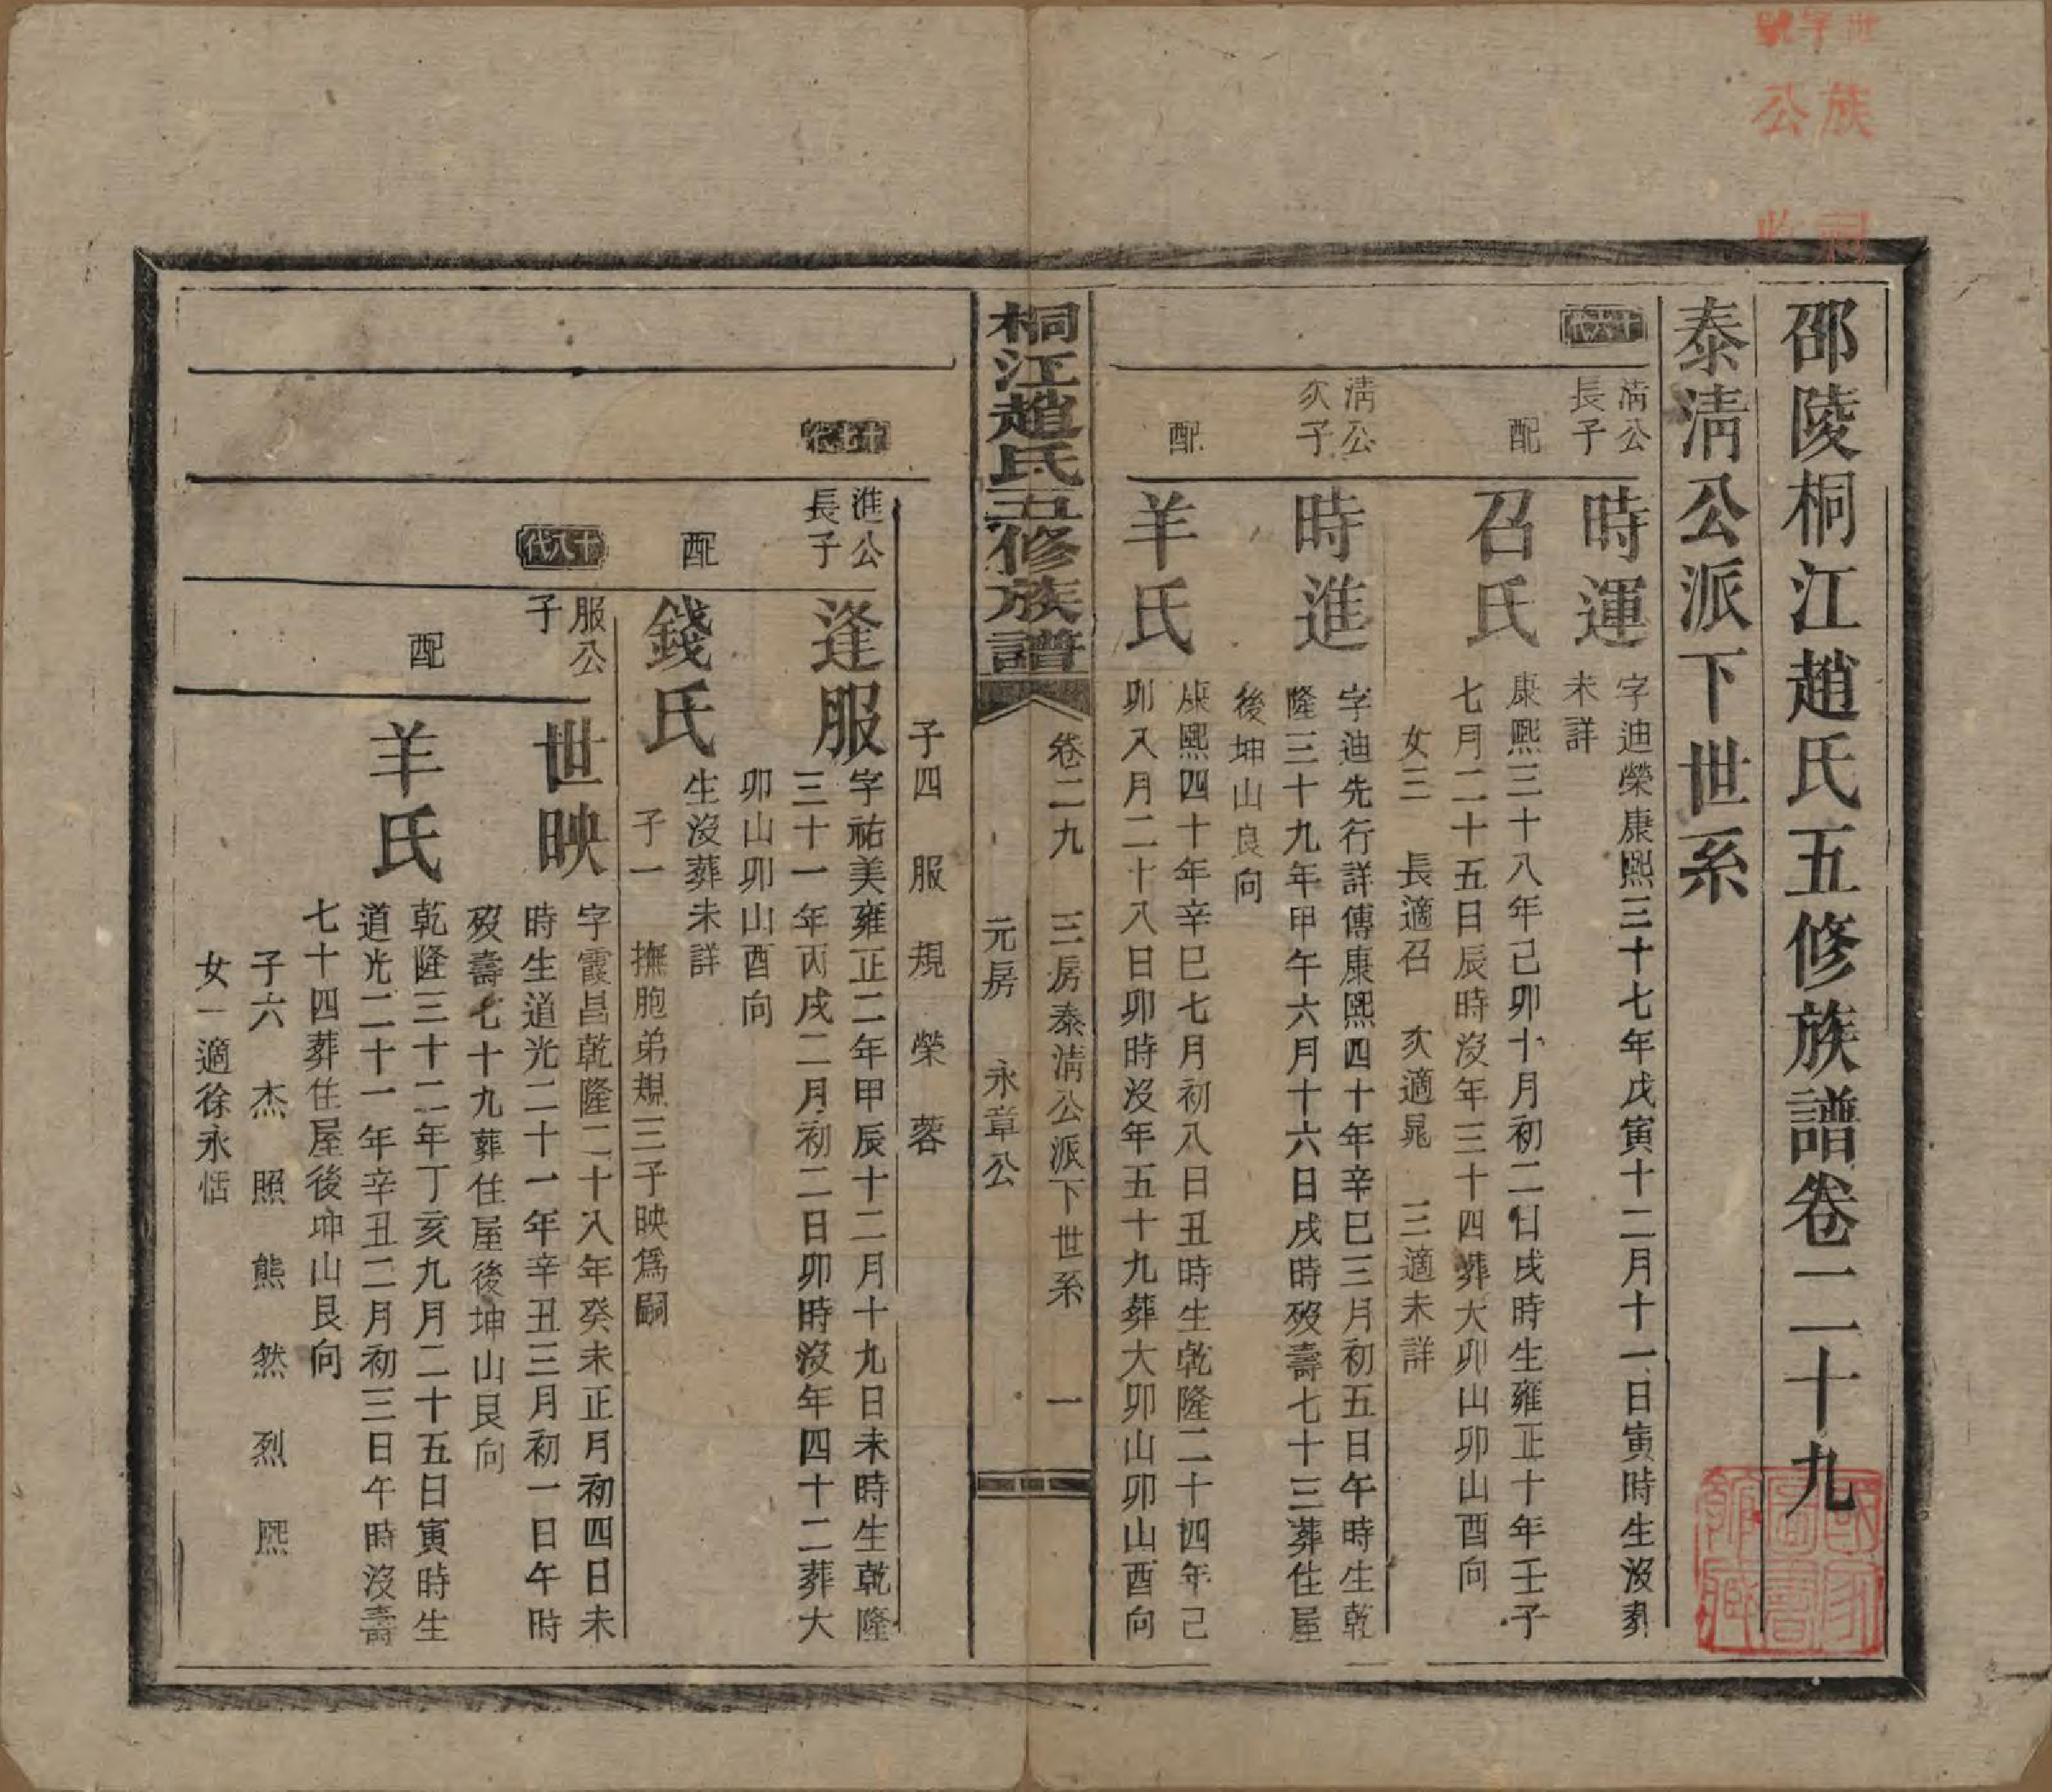 邵陵桐江趙氏五修族譜卷二十九
泰清公派下世系
十六代
清公長子
時運
字迪榮康熙三十七年戊寅十二月十一日寅時生沒葬
未詳
配
召氏
康熙三十八年己卯十月初二日戌時生雍正十年壬子
七月二十五日辰時沒年三十四葬大卯山卯山酉向
女三 長適召 次適晁 三適未詳
清公次子
時進
字迪先行詳傳康熙四十年辛巳三月初五日午時生乾
隆三十九年甲午六月十六日戌時歿壽七十三葬住屋
後坤山艮向
配
羊氏
康熙四十年辛巳七月初八日丑時生乾隆二十四年己
卯八月二十八日卯時沒年五十九葬大卯山卯山酉向
桐江趙氏五修族譜
卷二九 三房泰清公派下世系 一
元房 永章公
子四 服 規 榮 蓉
十七代
進公長子
逢服
字祐美雍正二年甲辰十二月十九日未時生乾隆
三十一年丙戌二月初二日卯時沒年四十二葬大
卯山卯山酉向
配
錢氏
生沒葬未詳
子一 撫胞弟規三子映爲嗣
十八代
服公子
世映
字霞昌乾隆二十八年癸未正月初四日未
時生道光二十一年辛丑三月初一日午時
歿壽七十九葬住屋後坤山艮向
配
羊氏
乾隆三十二年丁亥九月二十五日寅時生
道光二十一年辛丑二月初三日午時沒壽
七十四葬住屋後坤山艮向
子六 杰 照 熊 然 烈 熙
女一適徐永恬
世字號
族
公
祠
收
國家圖書館藏